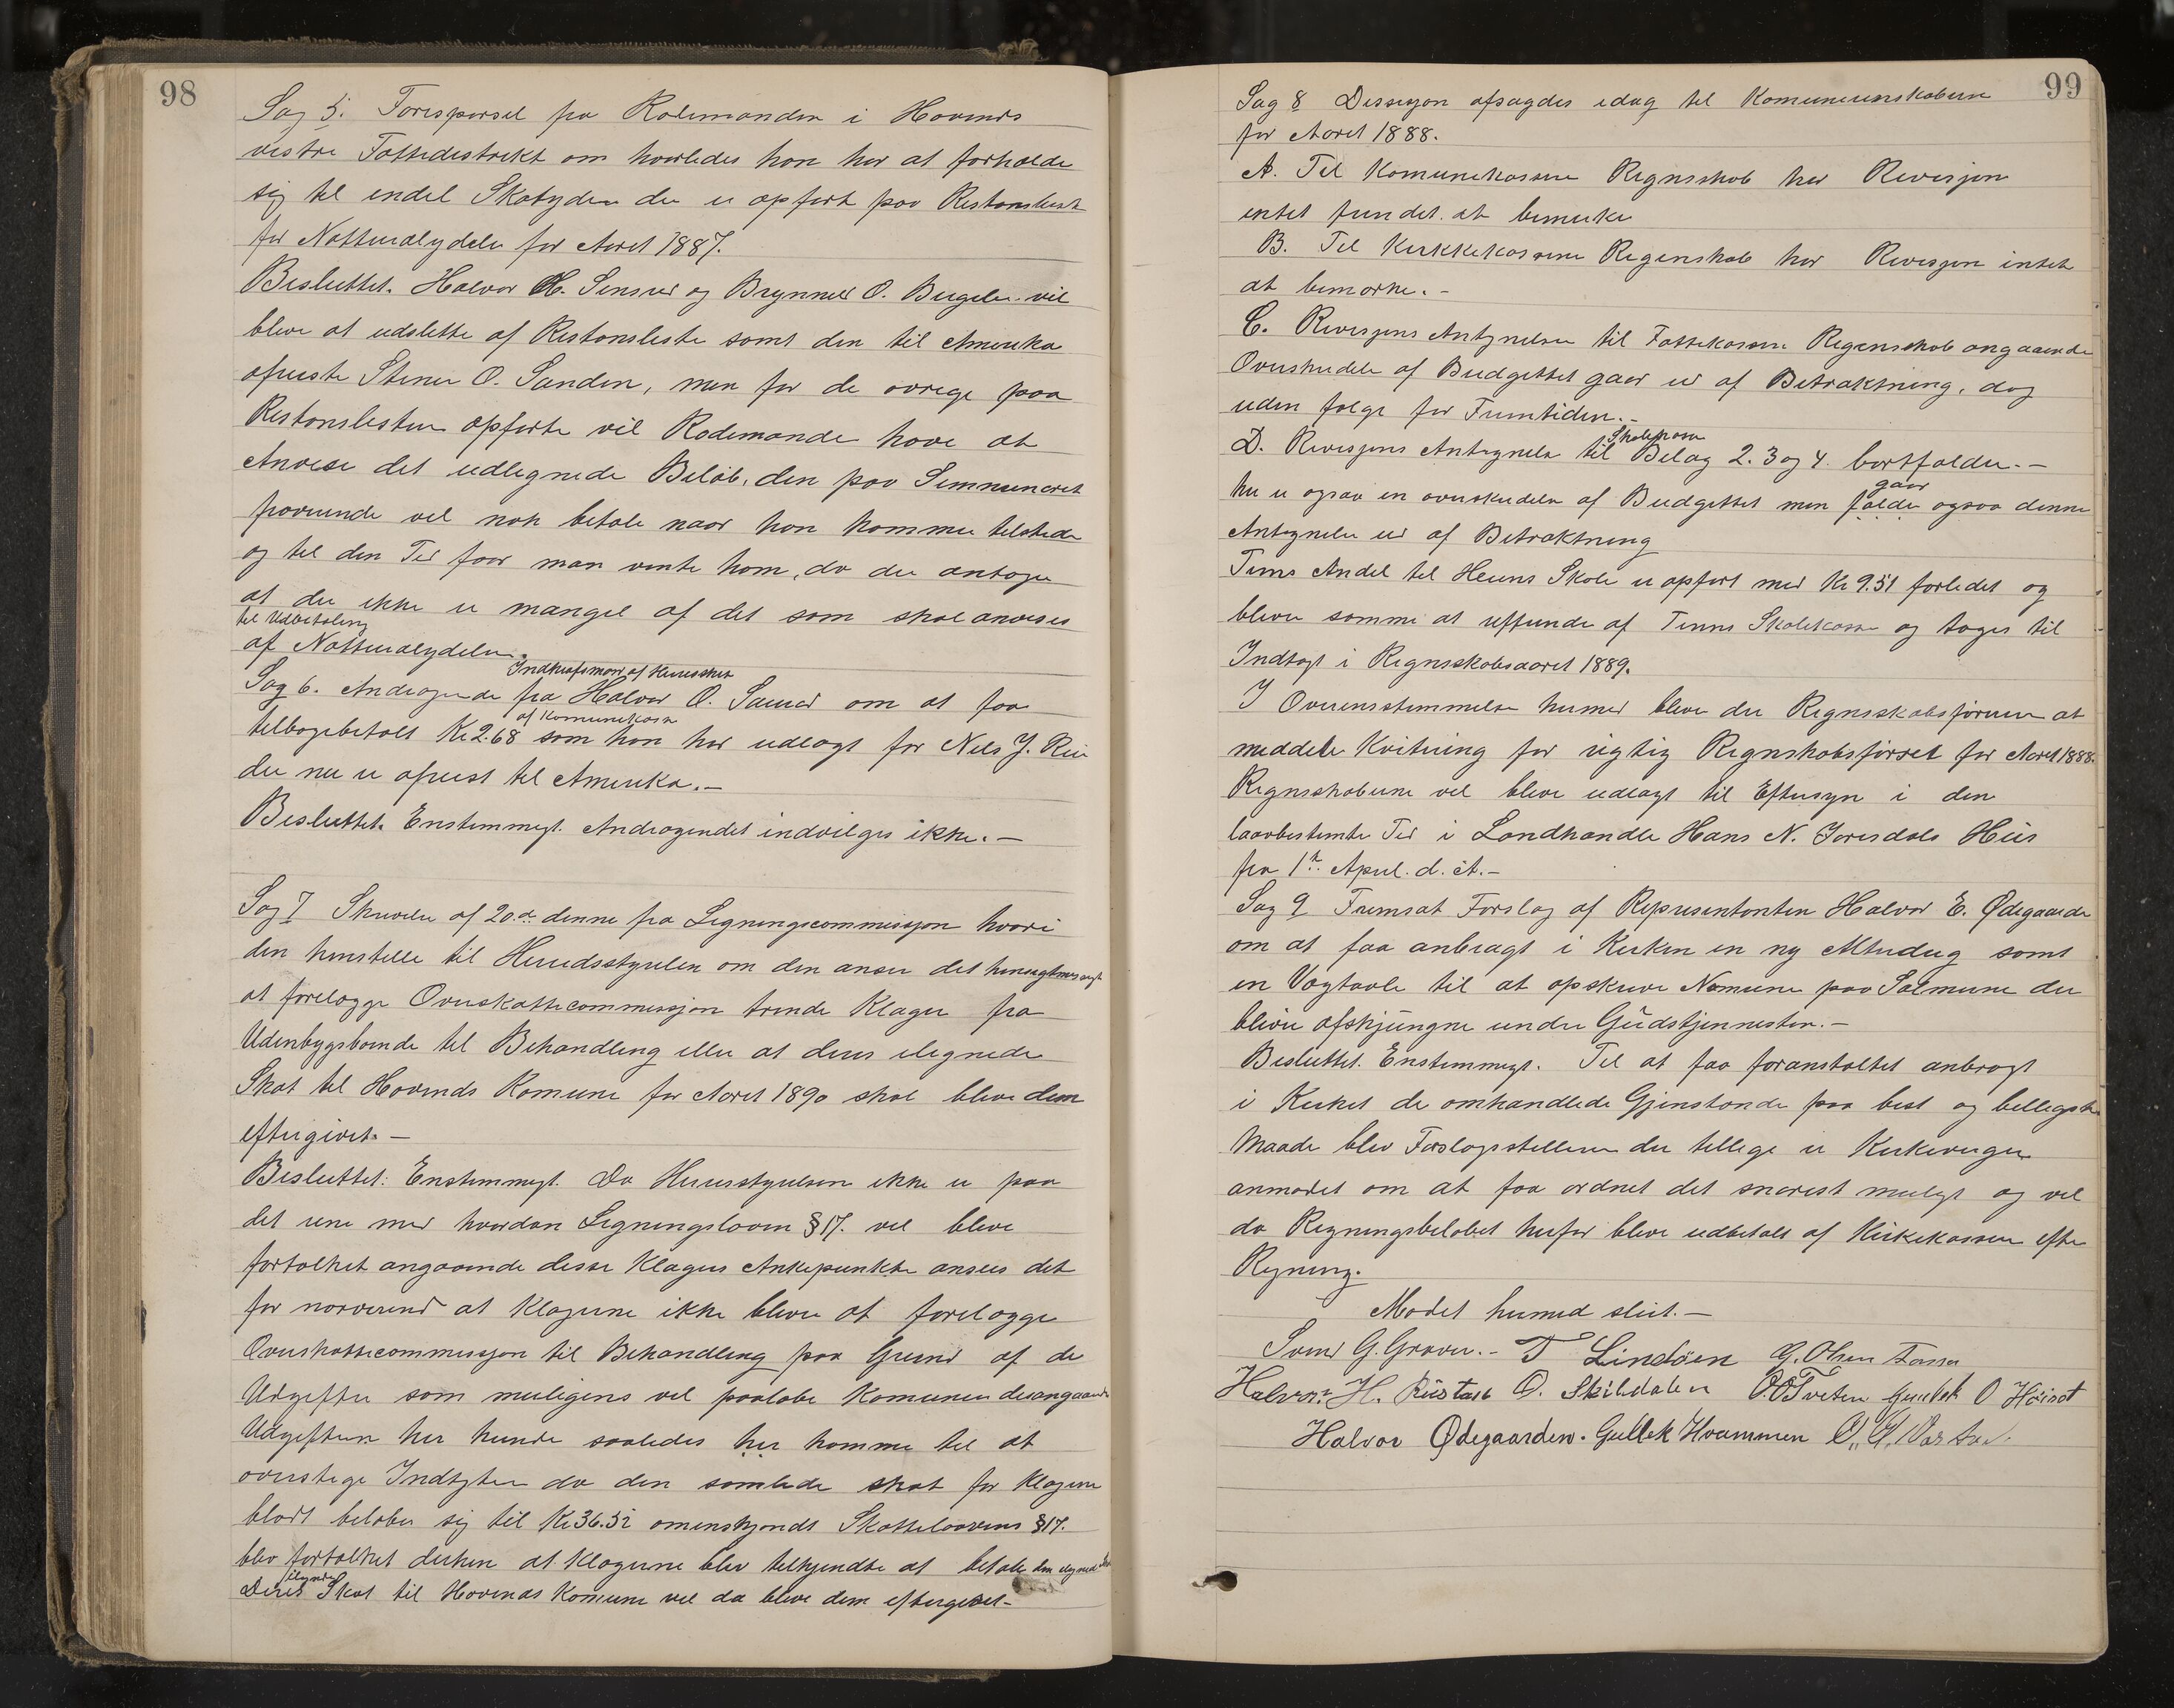 98
Sag 5. Forespørsel fra Rodemanden i Hovinds
vestre Fattedistrikt om hvorledes han har at forholde
sig til endel Skatyder der er opført paa Restanslist
for Natturalydelse for Aaret 1887.
Besluttet. Halvor H. Sensrud og Brynneld O. Bergeln. vil
blive at udslette af Restansliste samt den til Amerika
afreiste Stener O. Sanden, men for de øvrige paa
Restanslisten opførte vil Rodemande have at
Anvise det udlignede Beløb. den paa
nok betale naar han kommer tilstede
og til den Tid faar man vente ham, da der antages
at der ikke er mangel af det som skal anvises
til Udbetaling
af Natturalydelsen.
Indkrafsmand af Heredsskat
Sag 6. Andragende fra Halvor O. Saurud om at faa
af Komunekasse
tilbagebetalt Kr 2.68 som han har udlagt for Nils J. Rui
der nu er afreist til Amerika. —
Besluttet. Enstemmigt. Andragendet indvilges ikke. —
Sag 7 Skrivelse af 20de denne fra Ligningscommissjon hvori
den henstille til Heredsstyrelsen om den anser det hensigtmæssigt
at forelægge Overskattecommissjon trende Klager fra
Udenbygsboende til Behandling eller at deres ilignede
Skat til Hovinds Komune for Aaret 1890 skal blive dem
eftergivet. —
Besluttet: Enstemmigt. Da Heredsstyrelsen ikke er paa
det rene med hvordan Ligningsloven § 17. vil blive
fortolket angaaende disse Klagers Ankepunkte ansees det
for nærværend at Klagerne ikke bliver at forelægge
Overskattecommissjon til Behandling paa Grund af de
Udgifter som muligens vil paaløbe Komunen derangaaende
Udgiften her kunde saaledes her komme til at
overstige Indtægten da den samlede skat for Klagerne
blodt beløber sig til Kr 36.52 omenskjøndt Skatteloovens § 17.
blev fortolket derhen at Klagerne blev tilkjendte at betale den ilignede Skat
ilignede
Deres Skat til Hovinds Komune vil da blive dem eftergivet —
99
Sag 8 Desisjon afsagdes idag til Komuneregnskaberne
for Aaret 1888.
A. Til Komunekassens Regnskab har Revisjon
intet fundet at bemerke
B. Til Kirkkekassens Regenskab har Revisjon intet
at bemærke. —
C. Revisjons Antegnelse til Fattekassens Regenskab angaaende
Overskridelse af Budgettet gaar ud af Betraktning, dog
uden følge for Fremtiden. —
Skolekasse
D. Revisjons Antegnelse til Bilag 2. 3 og 4. bortfalder. —
gaar
her er ogsaa en overskridelse af Budgettet men falder ogsaa denne
Antegnelse ud af Betraktning
Tinns Andel til Heuns Skole er opført med Kr 9.51 forledet og
bliver somme at reffunde af Tinns Skolekasse og tages til
Indtægt i Regnsskabsaaret 1889.
I Overensstemmelse hermed bliver der Regnsskabsføreren at
meddele Kvitering for rigtig Regnskabsførsel for Aaret 1888.
Regnsskaberne vil blive udlagt til Eftersyn i den
laavbestemte Tid i Landhandle Hans N. Joresdals Hüs
fra 1te April. d. A. —
Sag 9 Fremsat Forslag af Representanten Halvor E. Ødegaarden
om at faa anbragt i Kirken en ny Alterdug samt
en Vægtavle til at opskrive Nomrene paa Salmerne der
bliver afskjüngne under Güdstjennesten. —
Besluttet. Enstemmigt. Til at faa foranstaltet anbragt
i Kirket de omhandlede Gjenstande paa best og billigste
Maade blev Forslagsstilleren der tillige er Kirkeverger
anmodet om at faa ordnet det snarest muligt og vil
da Regningsbeløbet herfor blive udbetalt af Kirkekassen efter
Regning.
Mødet hermed slut. —
Svend G. Graver. — T Lindöen G. Olsen
Halvor H. Rüstad O. Skibdalen O. O. Tveten Gunbek O Höisæt
Halvor Ødegaarden. Gullek Hvammen